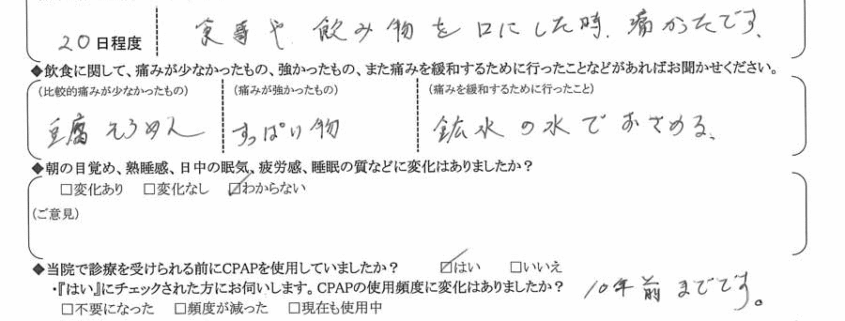 20日程度 食事や飲み物を口にした時、痛かったです、
◆飲食に関して、痛みが少なかったもの、強かったもの、また痛みを緩和するために行ったことなどがあればお聞かせください。
(比較的痛みが少なかったもの) (痛みが強かったもの) (痛みを緩和するために行ったこと)
豆腐 そうめん すっぱい物 鉱水の水でおさめる、
◆朝の目覚め、熟睡感、日中の眠気、疲労感、睡眠の質などに変化はありましたか？
□変化あり □変化なし ☑わからない
(ご意見)
◆当院で診療を受けられる前にCPAPを使用していましたか？ ☑はい □いいえ
・『はい』にチェックされた方にお伺いします。CPAPの使用頻度に変化はありましたか？ 10年前までです。
□不要になった □頻度が減った □現在も使用中